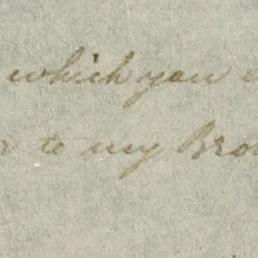 which you
to my